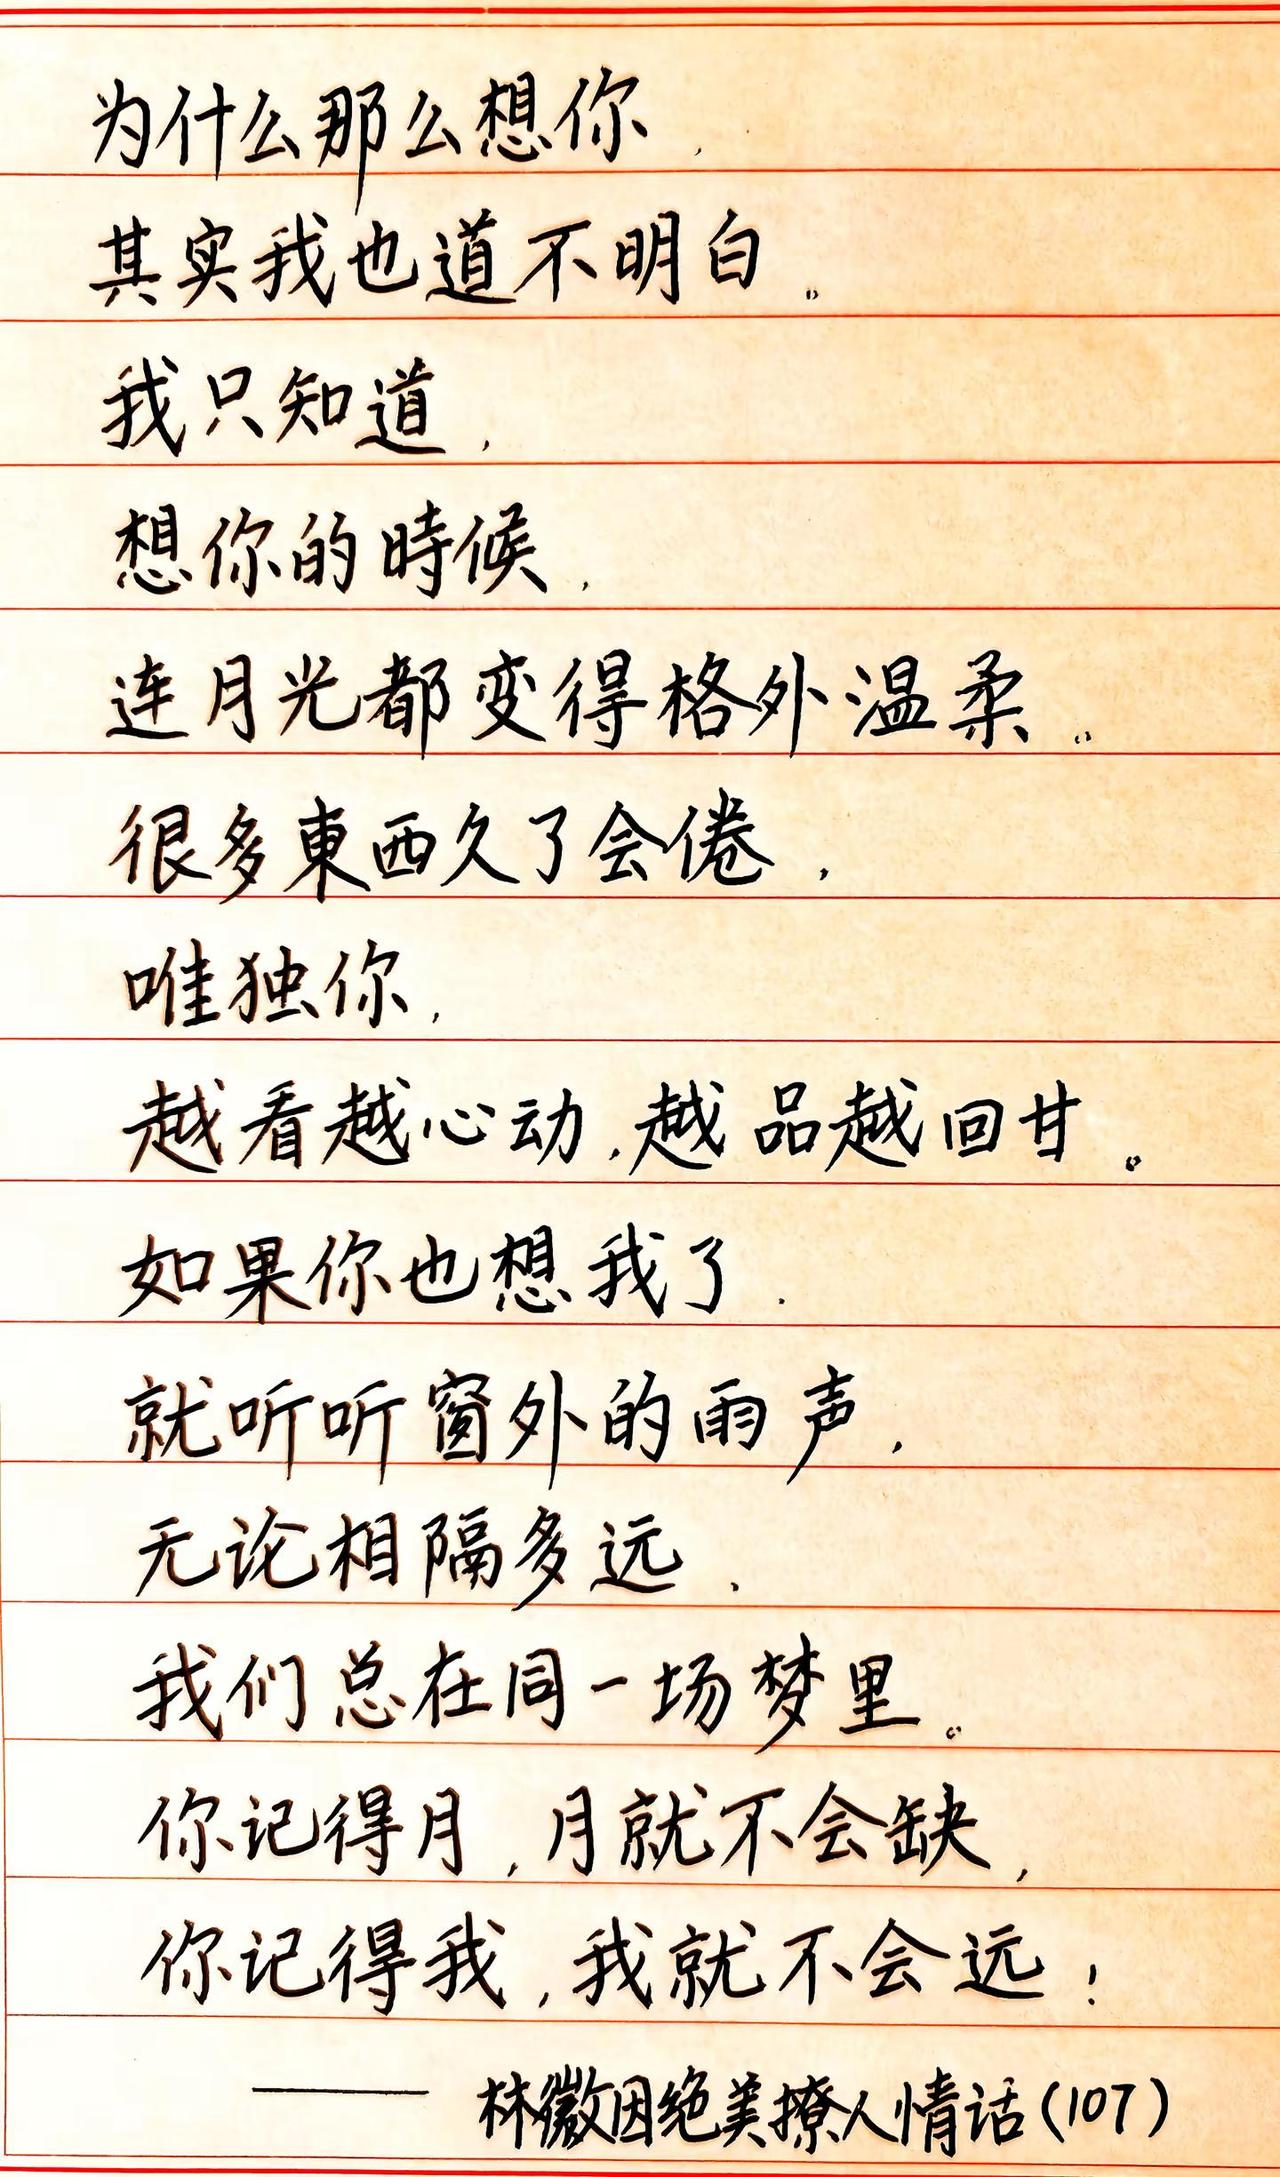 为什么那么想你，
其实我也道不明白。
我只知道，
想你的時候，
连月光都变得格外温柔。
很多東西久了会倦，
唯独你，
越看越心动，越品越回甘。
如果你也想我了，
就听听窗外的雨声，
无论相隔多远，
我们总在同一场梦里。
你记得月，月就不会缺，
你记得我，我就不会远！
——林徽因绝美撩人情话(107)